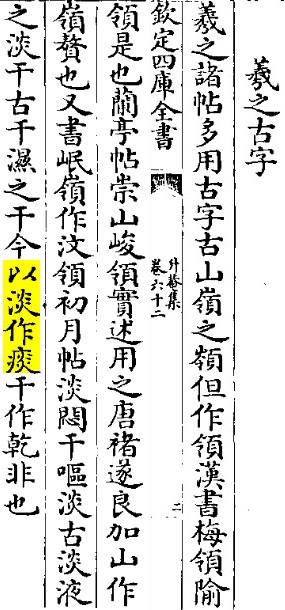 羲之古字
羲之諸帖多用古字古山嶺之嶺但作領漢書梅領隃
欽定四庫全書
升菴集
卷六十二
二
領是也蘭亭帖崇山峻領實述用之唐褚遂良加山作
嶺贅也又書岷嶺作汶領初月帖淡悶干嘔淡古淡液
之淡干古干濕之干今以淡作痰干作乾非也